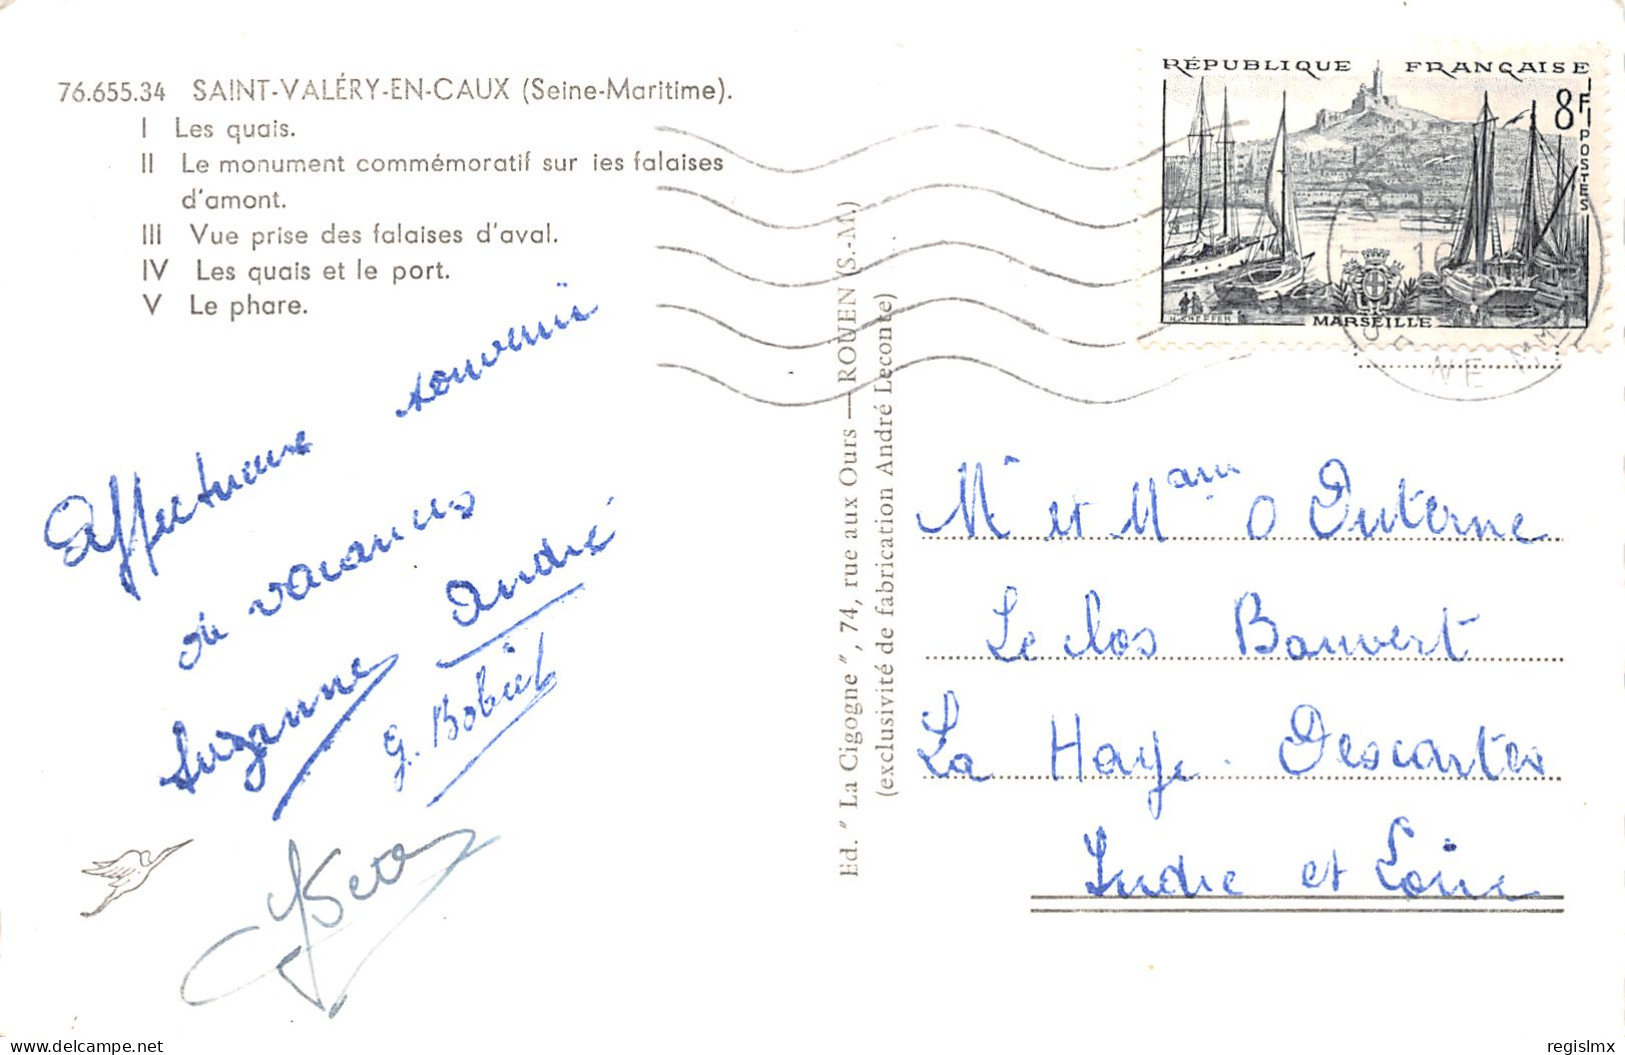 76.655.34 SAINT-VALÉRY-EN-CAUX (Seine-Maritime).
I Les quais.
II Le monument commémoratif sur les falaises
d'amont.
III Vue prise des falaises d'aval.
IV Les quais et le port.
V Le phare.
Affectueux souvenir
de vacances
Suzanne André
G. Bobiet
Ed. " La Cigogne ", 74, rue aux Ours — ROUEN (S.-M.)
(exclusivité de fabrication André Leconte)
RÉPUBLIQUE FRANÇAISE
8F
POSTES
MARSEILLE
Mr et Mme O Duterne
Le Clos Bauvert
La Haye-Descartes
Indre et Loire
www.delcampe.net
regislmx